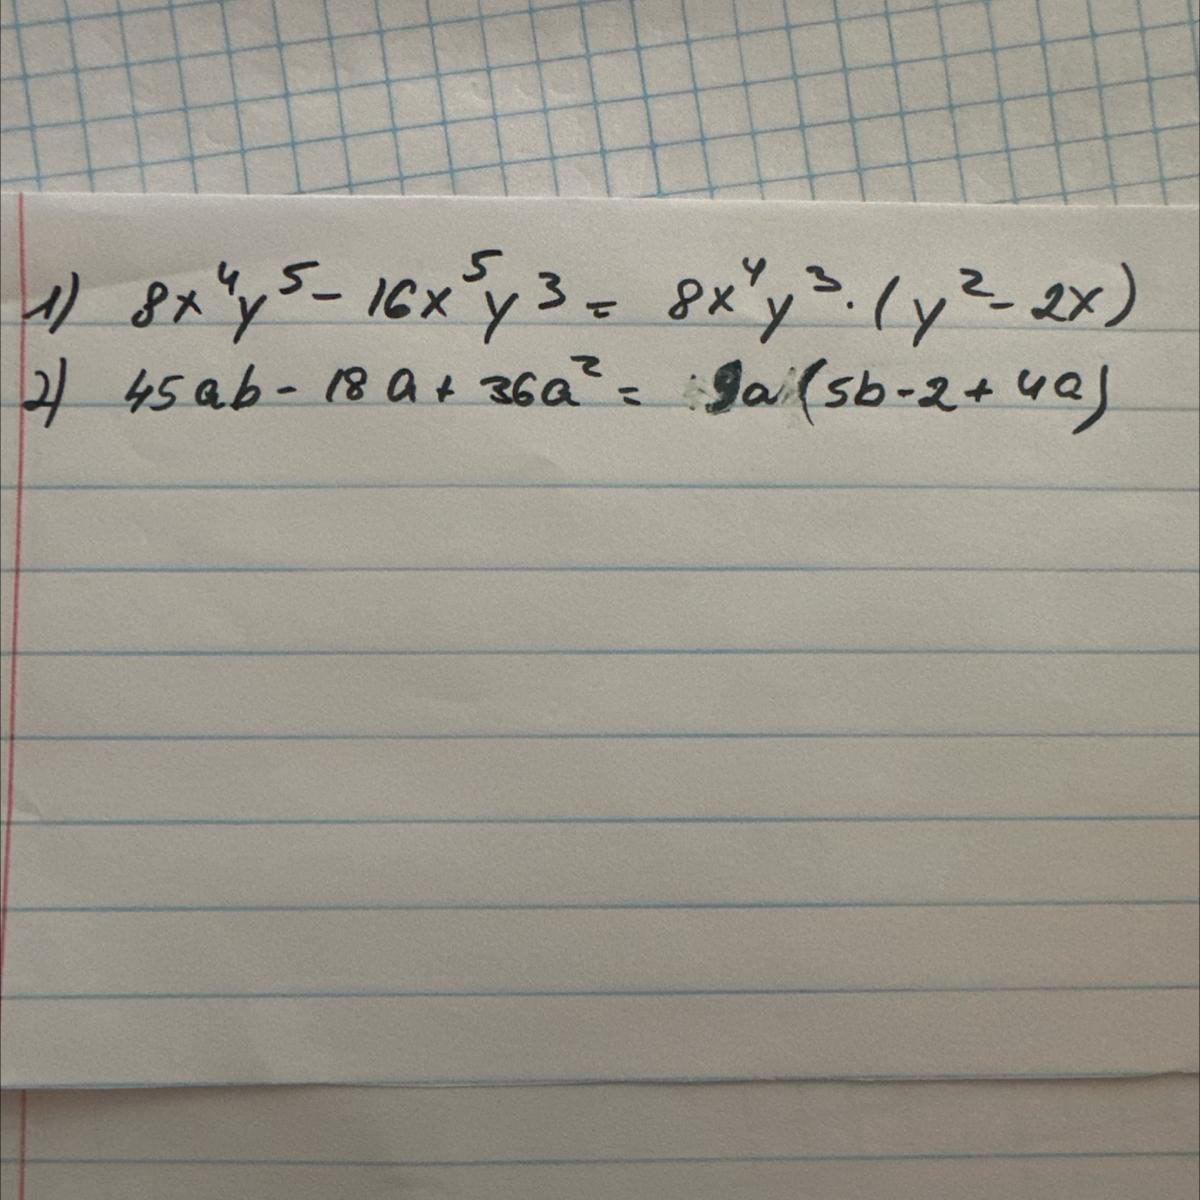 1) 8x⁴y⁵ - 16x⁵y³ = 8x⁴y³ · (y² - 2x)
2) 45ab - 18a + 36a² = 9a (5b - 2 + 4a)